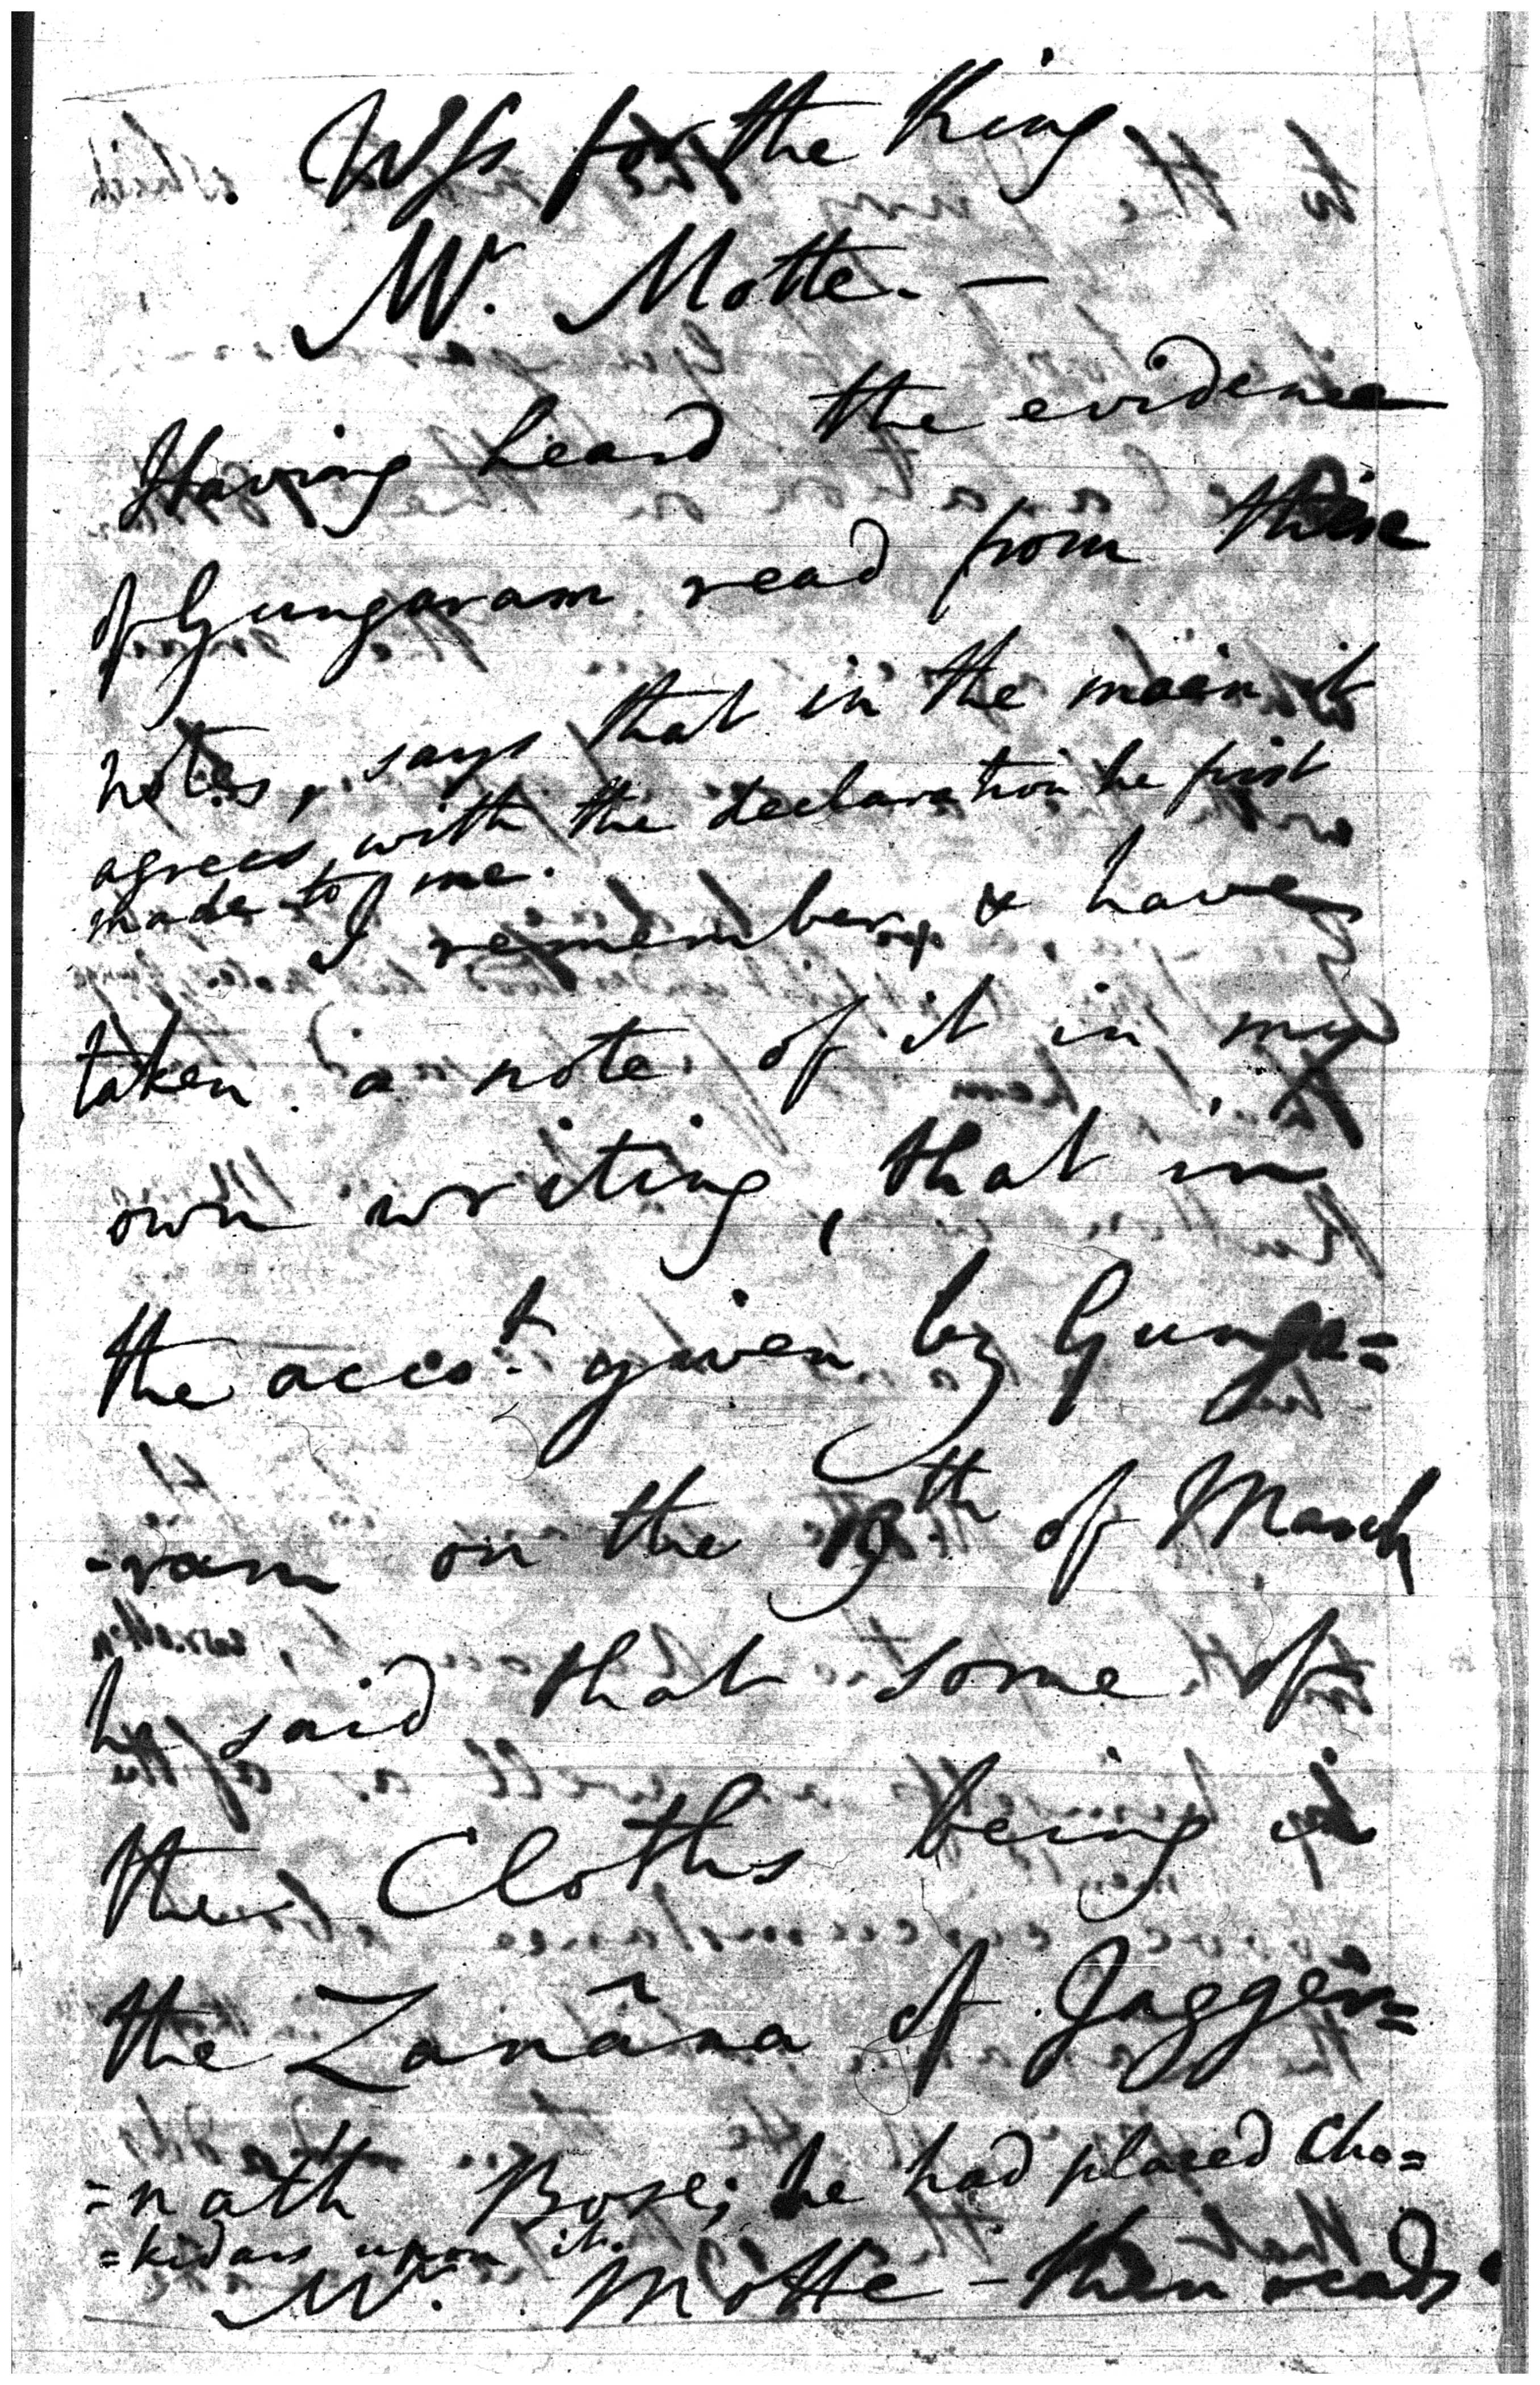 Wss for the King
Mr. Motte. —
Having heard the evidence
of Gungaram read from these
notes, says that in the main it
agrees with the declaration he first
made to me.
I remember, & have
taken a note of it in my
own writing, that in
the acco.t given by Gunga=
-ram on the 19th of March
he said that some of
the Cloths being in
the Zanâna of Jaggen=
=nath Bose; he had placed Cho=
=kidars upon it.
Mr. Motte - then reads